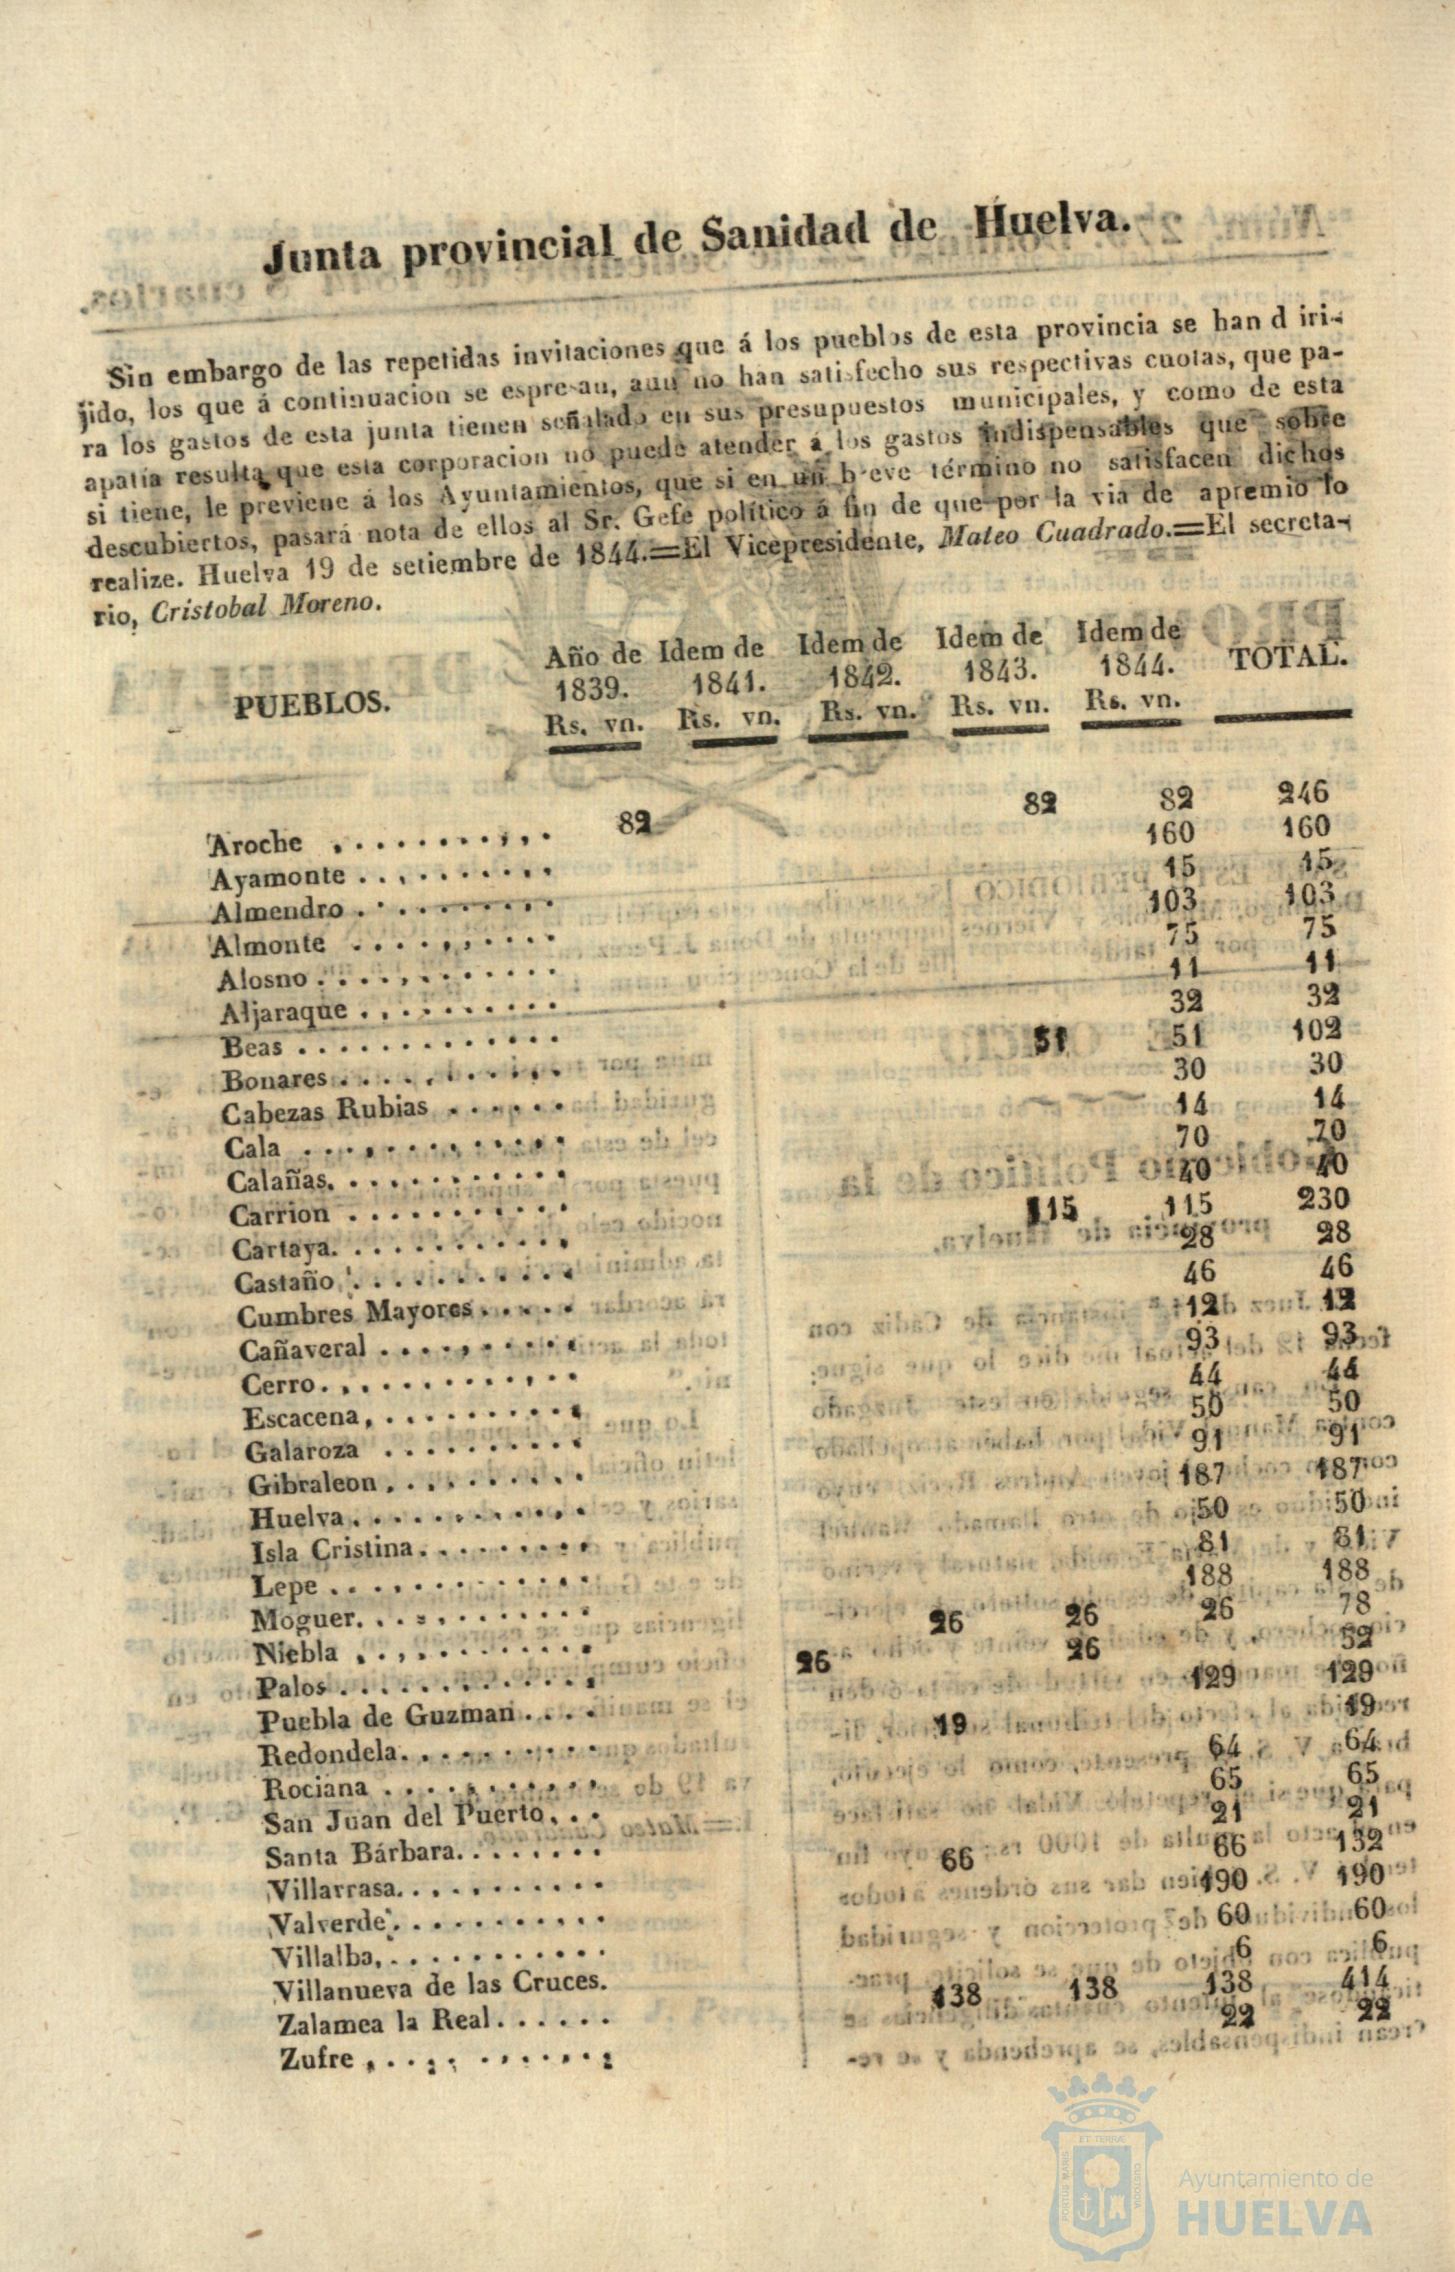 Junta provincial de Sanidad de Huelva.
Sin embargo de las repetidas invitaciones que á los pueblos de esta provincia se han d iri-
jido, los que á continuacion se espresan, aun no han satisfecho sus respectivas cuotas, que pa-
ra los gastos de esta junta tienen señalado en sus presupuestos municipales, y como de esta
apatía resulta que esta corporacion no puede atender á los gastos indispensables que sobre
si tiene, le previene á los Ayuntamientos, que si en un breve término no satisfacen dichos
descubiertos, pasará nota de ellos al Sr. Gefe político á fin de que por la via de apremio lo
realize. Huelva 19 de setiembre de 1844.=El Vicepresidente, Mateo Cuadrado.=El secreta-
rio, Cristobal Moreno.
PUEBLOS. Año de 1839. Rs. vn. Idem de 1841. Rs. vn. Idem de 1842. Rs. vn. Idem de 1843. Rs. vn. Idem de 1844. Rs. vn. TOTAL.
Aroche 82 82 82 246
Ayamonte 160 160
Almendro 15 15
Almonte 103 103
Alosno 75 75
Aljaraque 11 11
Beas 32 32
Bonares 51 51 102
Cabezas Rubias 30 30
Cala 14 14
Calañas. 70 70
Carrion 40 40
Cartaya. 115 115 230
Castaño 28 28
Cumbres Mayores 46 46
Cañaveral 12 12
Cerro. 93 93
Escacena, 44 44
Galaroza 50 50
Gibraleon 91 91
Huelva 187 187
Isla Cristina. 50 50
Lepe 81 81
Moguer. 188 188
Niebla 26 26 26 78
Palos 26 26 52
Puebla de Guzman 129 129
Redondela. 19 19
Rociana 64 64
San Juan del Puerto 65 65
Santa Bárbara. 21 21
Villarrasa. 66 66 132
Valverde 190 190
Villalba, 60 60
Villanueva de las Cruces. 6 6
Zalamea la Real 138 138 138 414
Zufre 22 22
Ayuntamiento de
HUELVA